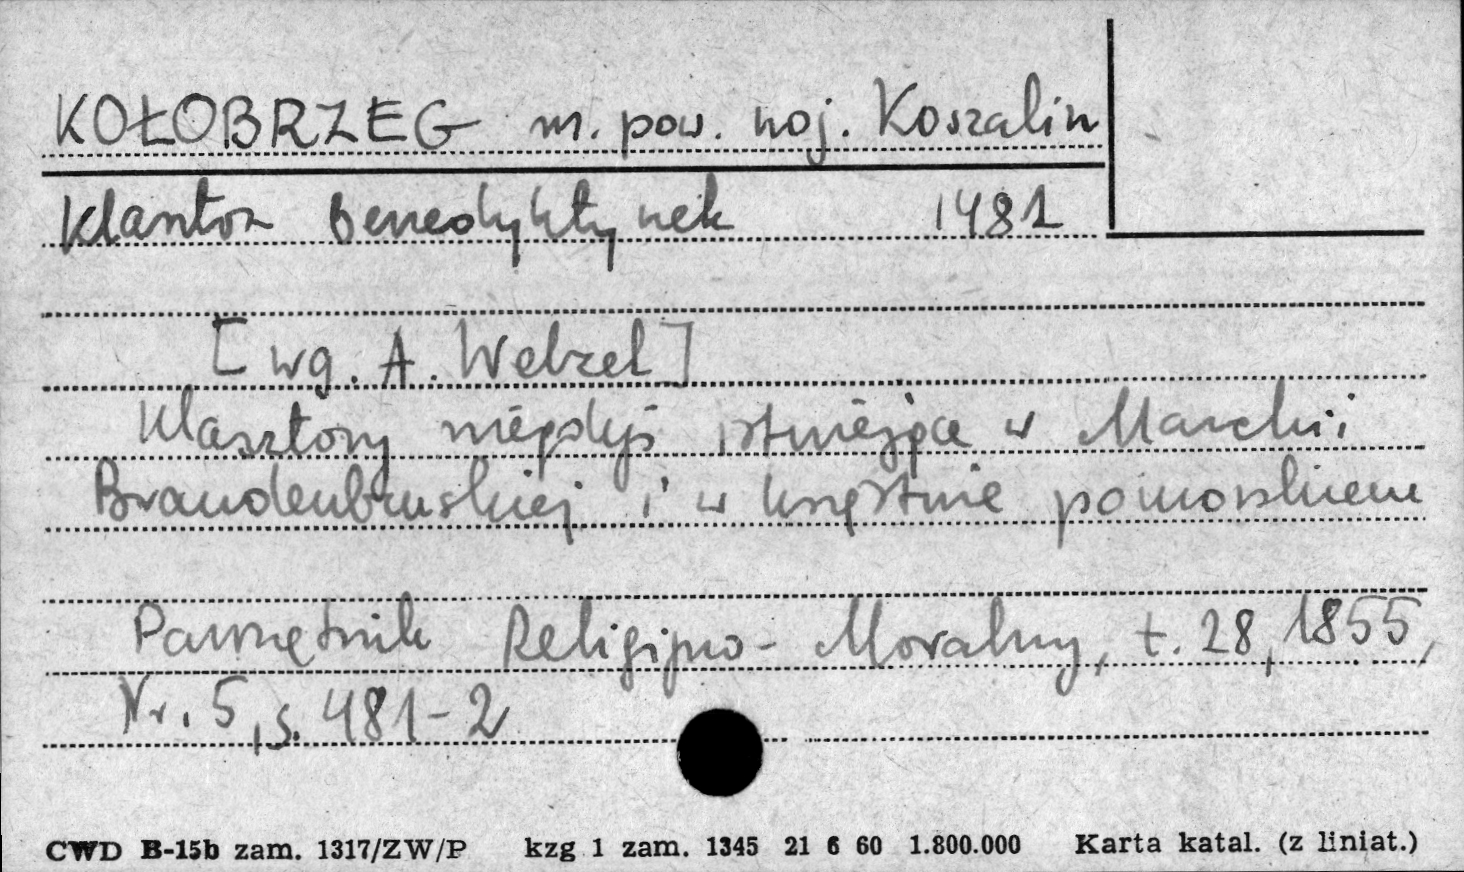 KOŁOBRZEG m. pow. woj. Koszalin
Klasztor Benedyktynek 1481
[wg. A. Welzel]
Klasztory niegdyś istniejące w Marchii
Brandenburskiej i w księstwie pomorskiem
Pamiętnik Religijno-Moralny, t. 28, 1855,
Nr. 5, s. 481-2
CWD B-15b zam. 1317/ZW/P kzg 1 zam. 1345 21 6 60 1.800.000 Karta katal. (z liniat.)